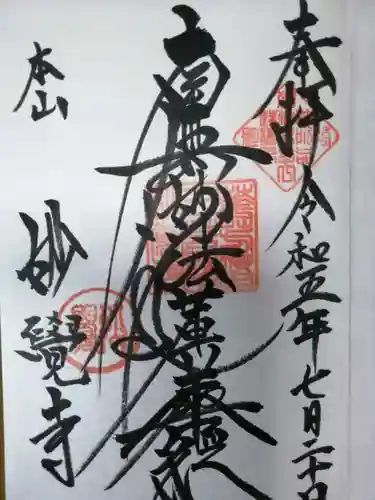 奉拝 令和五年七月二十日
南無妙法蓮華経
本山
妙覺寺